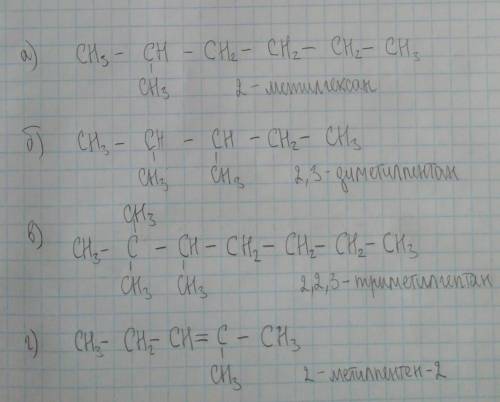 а) CH₃ – CH – CH₂ – CH₂ – CH₂ – CH₃
CH₃ 2-метилгексан
б) CH₃ – CH – CH – CH₂ – CH₃
CH₃ CH₃ 2,3-диметилпентан
CH₃
в) CH₃ – C – CH – CH₂ – CH₂ – CH₂ – CH₃
CH₃ CH₃ 2,2,3-триметилгептан
г) CH₃ – CH₂ – CH = C – CH₃
CH₃ 2-метилпентен-2